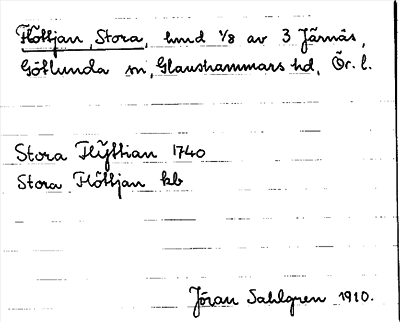 Flöttjan, Stora, hmd 1/8 av 3 Järnäs,
Götlunda sn, Glanshammars hd, Ör. l.
Stora Flÿttian 1740
Stora Flöttjan kb
Jöran Sahlgren 1910.